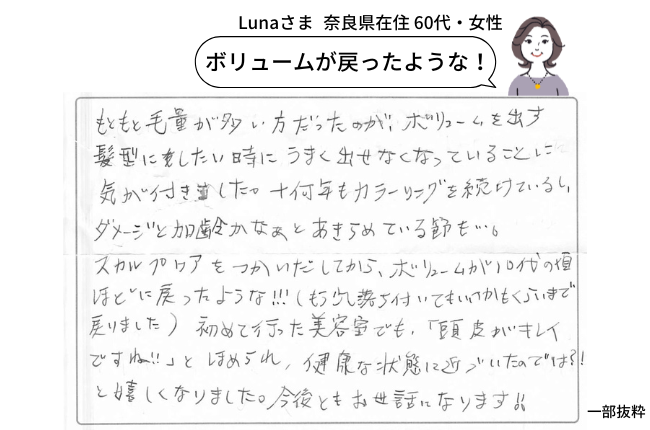 Lunaさま 奈良県在住 60代・女性
ボリュームが戻ったような！
もともと毛量が多い方だったのが、ボリュームを出す
髪型にしたい時にうまく出せなくなっていることに
気が付きました。十何年もカラーリングを続けているし、
ダメージと加齢かなぁとあきらめている節も…。
スカルプケアをつかいだしてから、ボリュームが10代の頃
ほどに戻ったような!!!(もう少し落ち付いてもいいかもくらいまで
戻りました) 初めて行った美容室でも、「頭皮がキレイ
ですね!!」とほめられ、健康な状態に近づいたのでは?!
と嬉しくなりました。今後ともお世話になります!!
一部抜粋